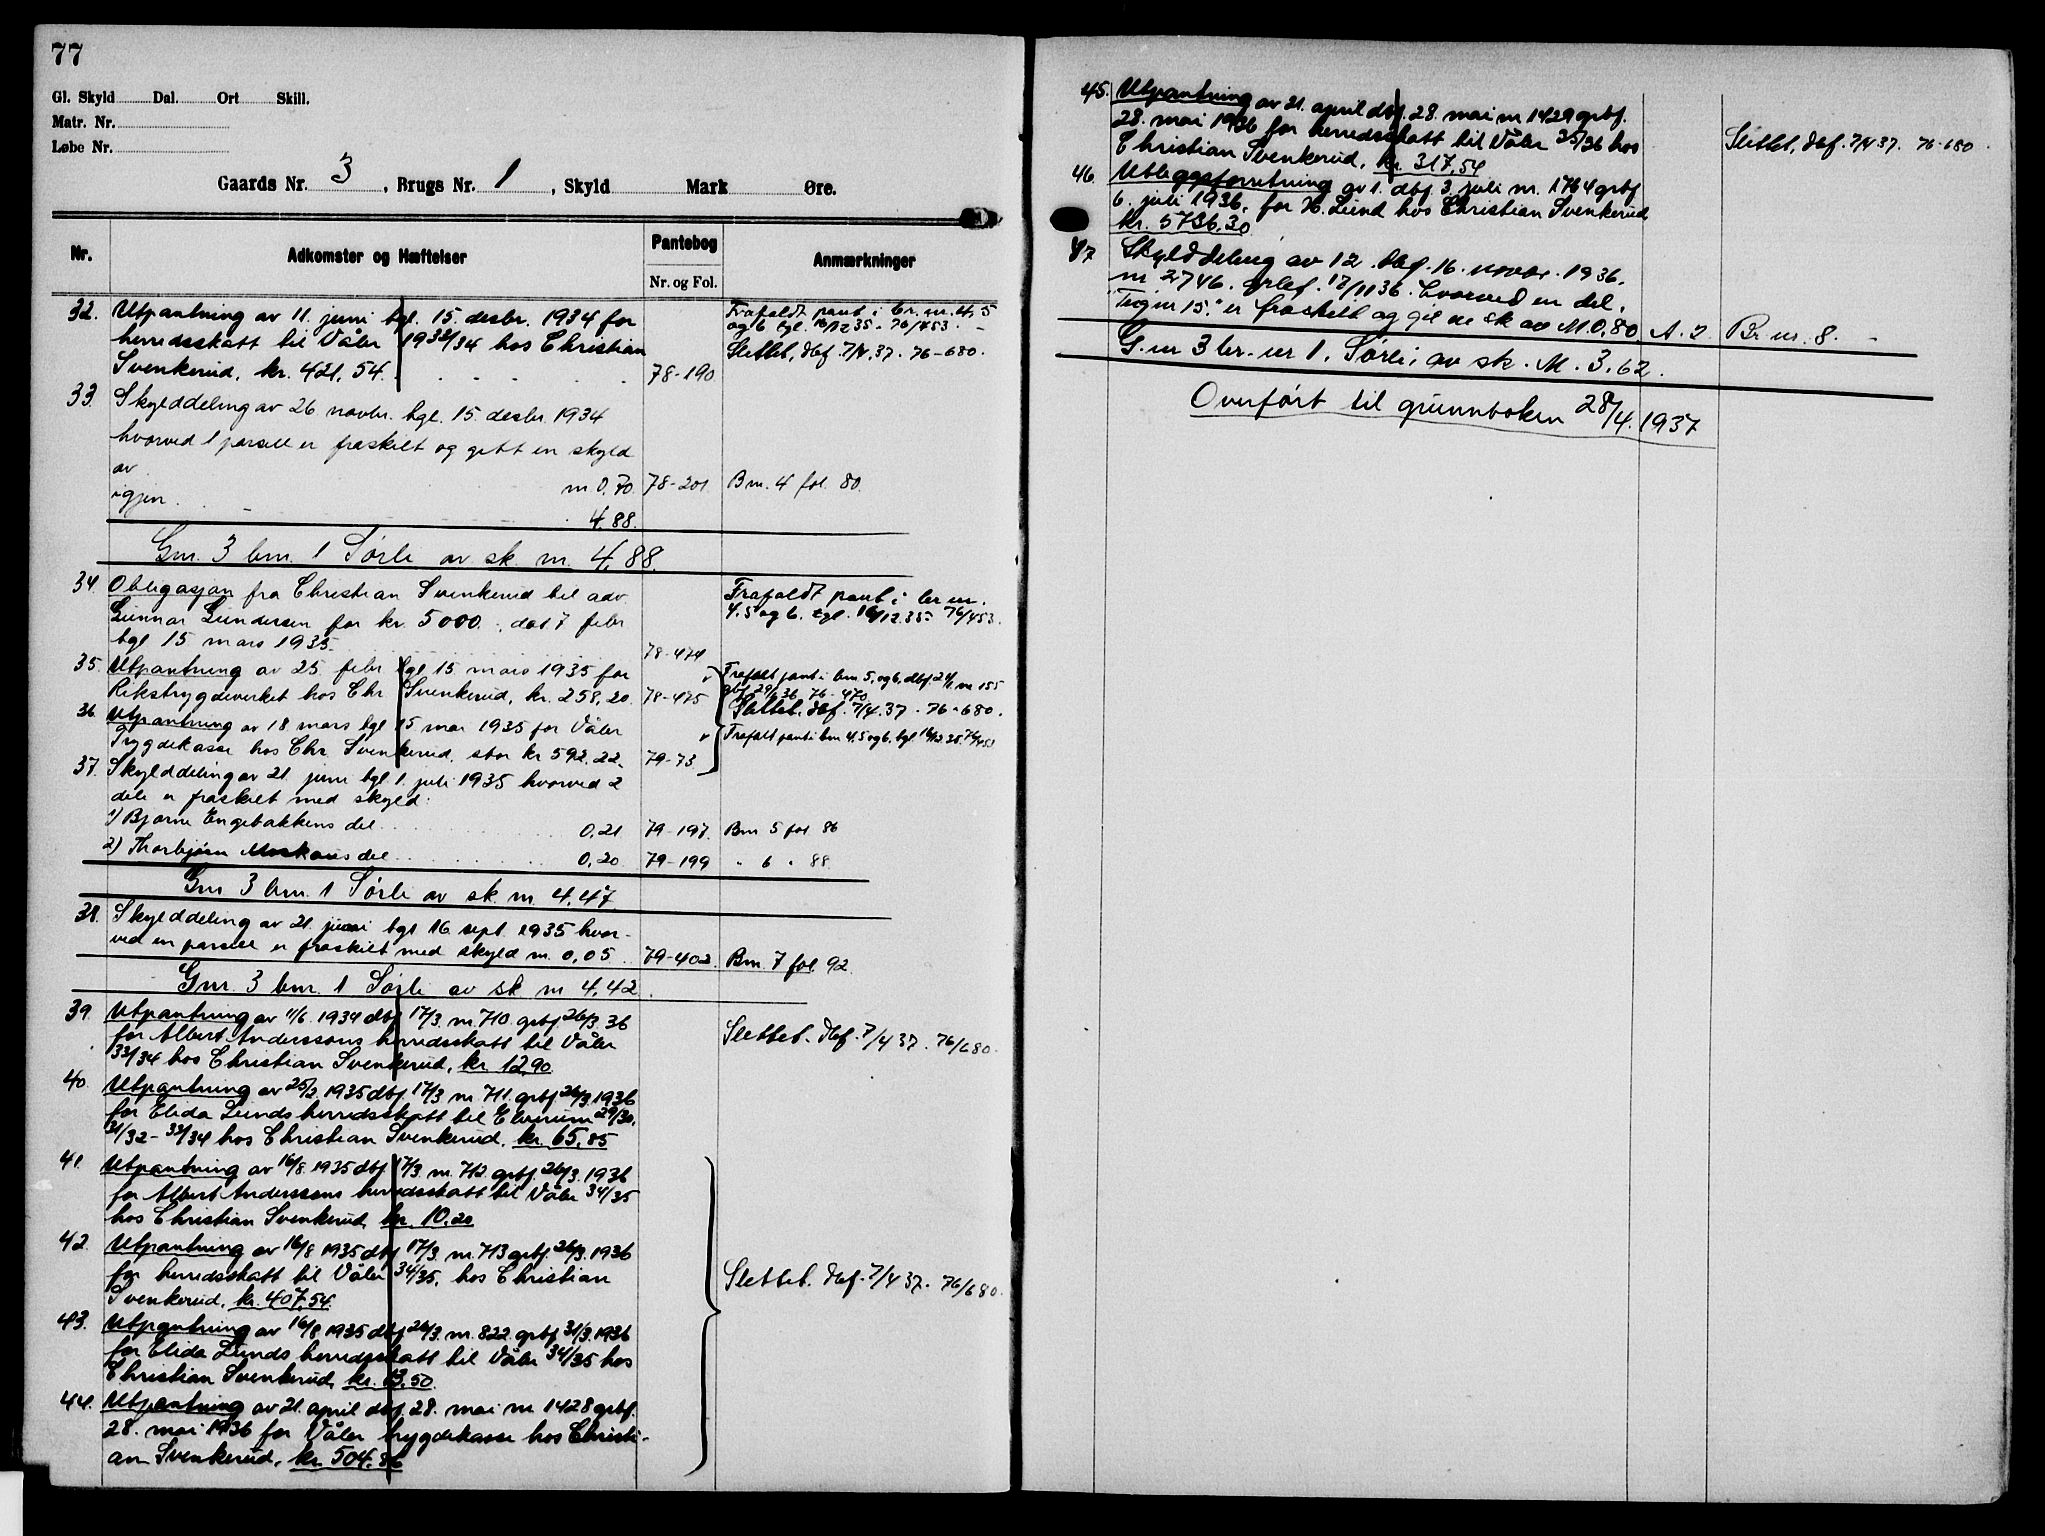 77
Gl. Skyld Dal. Ort Skill.
Matr. Nr.
Løbe Nr.
Gaards Nr. 3, Brugs Nr. 1, Skyld Mark Øre.
Nr. Adkomster og Hæftelser Pantebog Nr. og Fol. Anmærkninger
32. Utpantning av 11. juni tgl. 15. desbr. 1934 for
herredsskatt til Våler 1933/34 hos Christian
Svenkerud, kr. 421,54. 78-190
Frafaldt pant i br. nr. 4, 5
og 6 tgl. 16/12 35. 76/453.
Slettet, dbf. 7/4.37. 76-680.
33. Skylddeling av 26 novbr. tgl. 15 desbr. 1934
hvorved 1 parsell er fraskilt og gitt en skyld
av m 0,70 78-201 Bnr. 4 fol. 80.
igjen 4.88.
Gnr. 3 bnr. 1 Sørli av sk. m. 4,88.
34. Obligasjon fra Christian Svenkerud til adv
Gunnar Gundersen for kr. 5000.-, dat 7 febr
tgl 15 mars 1935. 78-474
Frafaldt pant i br nr.
4. 5 og 6. tgl. 16/12 35. 76/453.
35. Utpantning av 25 febr tgl 15 mars 1935 for
Rikstrygdeverket hos Chr Svenkerud, kr. 258,20. 78-475
Frafalt pant i bnr 5, og 6, dbf. 24/1 nr 155
gbf 29/1 36 76-470
Slettet. dbf. 7/4.37. 76-680.
36. Utpantning av 18 mars tgl 15 mai 1935 for Våler
Trygdekasse hos Chr. Svenkerud, stor kr 592.22. 79-73.
Frafalt pant i bnr 4. 5 og 6. tgl 16/12 35. 76/453
37. Skylddeling av 21. juni tgl. 1. juli 1935 hvorved 2
dele er fraskilt med skyld:
1) Bjarne Engebakkens del 0,21 79-197. Bnr 5 fol 86
2) Thorbjørn del 0,20 79-199 " 6 " 88.
Gnr 3 bnr. 1 Sørli av sk m 4,47
38. Skylddeling av 21. juni tgl 16 sept. 1935 hvor-
ved en parsell er fraskilt med skyld m. 0,05 79-402. Bnr. 7 fol 92.
Gnr. 3 bnr. 1 Sørli av sk m 4,42.
39. Utpantning av 11/6. 1934 dbf 17/3. nr. 710. grbf 26/3. 36
for Albert Anderssons herredsskatt til Våler
33/34 hos Christian Svenkerud, kr. 12,90.
Slettet. dbf. 7/4 37. 76/680.
40. Utpantning av 25/2 1935 dbf 17/3 nr 711. grbf. 26/3. 1936
for Elida Lunds herredsskatt til Elverum 29/30,
31/32 - 33/34 hos Christian Svenkerud, kr. 65,85
41. Utpantning av 16/8. 1935 dbf 17/3 nr. 712. grbf. 26/3. 1936
for Albert Anderssons herredsskatt til Våler 34/35
hos Christian Svenkerud kr. 10.20
42. Utpantning av 16/8 1935 dbf 17/3. nr. 713 grbf. 26/3. 1936
for herredsskatt til Våler 34/35, hos Christian
Svenkerud, kr. 407,54.
Slettet. dbf. 7/4 37. 76/680.
43. Utpantning av 16/8 1935 dbf 24/3. nr. 822. grbf 31/3. 1936
for Elida Lunds herredsskatt til Våler 34/35 hos
Christian Svenkerud, kr. 13,50.
44. Utpantning av 21. april dbf. 28. mai nr 1428 grbf.
28. mai 1936 for Våler trygdekasse hos Christi-
an Svenkerud, kr. 504,86
45. Utpantning av 21. april dbf. 28. mai nr 1429 grbf.
28. mai 1936 for herredsskatt til Våler 35/36 hos
Christian Svenkerud, kr. 317,54
Slettet, dbf. 7/4 37. 76-680.
46. Utleggsforretning av 1. dbf 3. juli nr. 1764 grbf
6. juli 1936. for H. Lund hos Christian Svenkerud
kr. 5736,30
47 Skylddeling av 12. dbf. 16. novbr. 1936.
nr 2746. grbf. 18/11 36. hvorved en del,
15." er fraskilt og git en sk av M. 0,80 A. 2. Br. nr. 8.
G. nr 3 br. nr 1. Sørli, av sk. M. 3,62.
Overført til grunnboken 28/4.1937